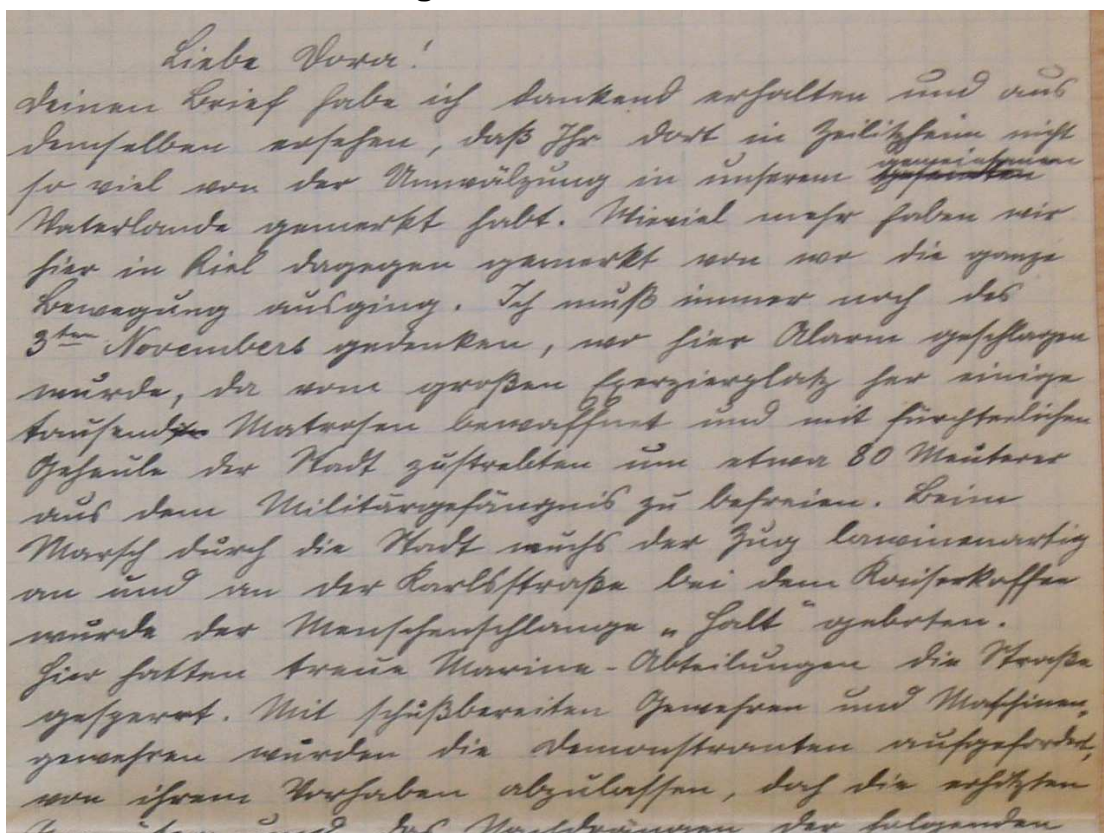 Liebe Dora!
Deinen Brief habe ich dankend erhalten und aus
demselben ersehen, daß Ihr dort in Zeilitzheim nicht
so viel von der Umwälzung in unserem gemeinsamen
Vaterlande gemerkt habt. Wieviel mehr haben wir
hier in Kiel dagegen gemerkt von wo die ganze
Bewegung ausging. Ich muß immer noch des
3ten Novembers gedenken, wo hier Alarm geschlagen
wurde, da vom großen Exerzierplatz her einige
tausend Matrosen bewaffnet und mit fürchterlichen
Geheule der Stadt zustrebten um etwa 80 Meuterer
aus dem Militärgefängnis zu befreien. Beim
Marsch durch die Stadt wuchs der Zug lawinenartig
an und an der Karlsstraße bei dem Kaiserkaffee
wurde der Menschenschlange „Halt" geboten.
Hier hatten treue Marine-Abteilungen die Straße
gesperrt. Mit schußbereiten Gewehren und Maschinen-
gewehren wurden die Demonstranten aufgefordert,
von ihrem Vorhaben abzulassen, doch die erhitzten
und das Nachdrängen der folgenden